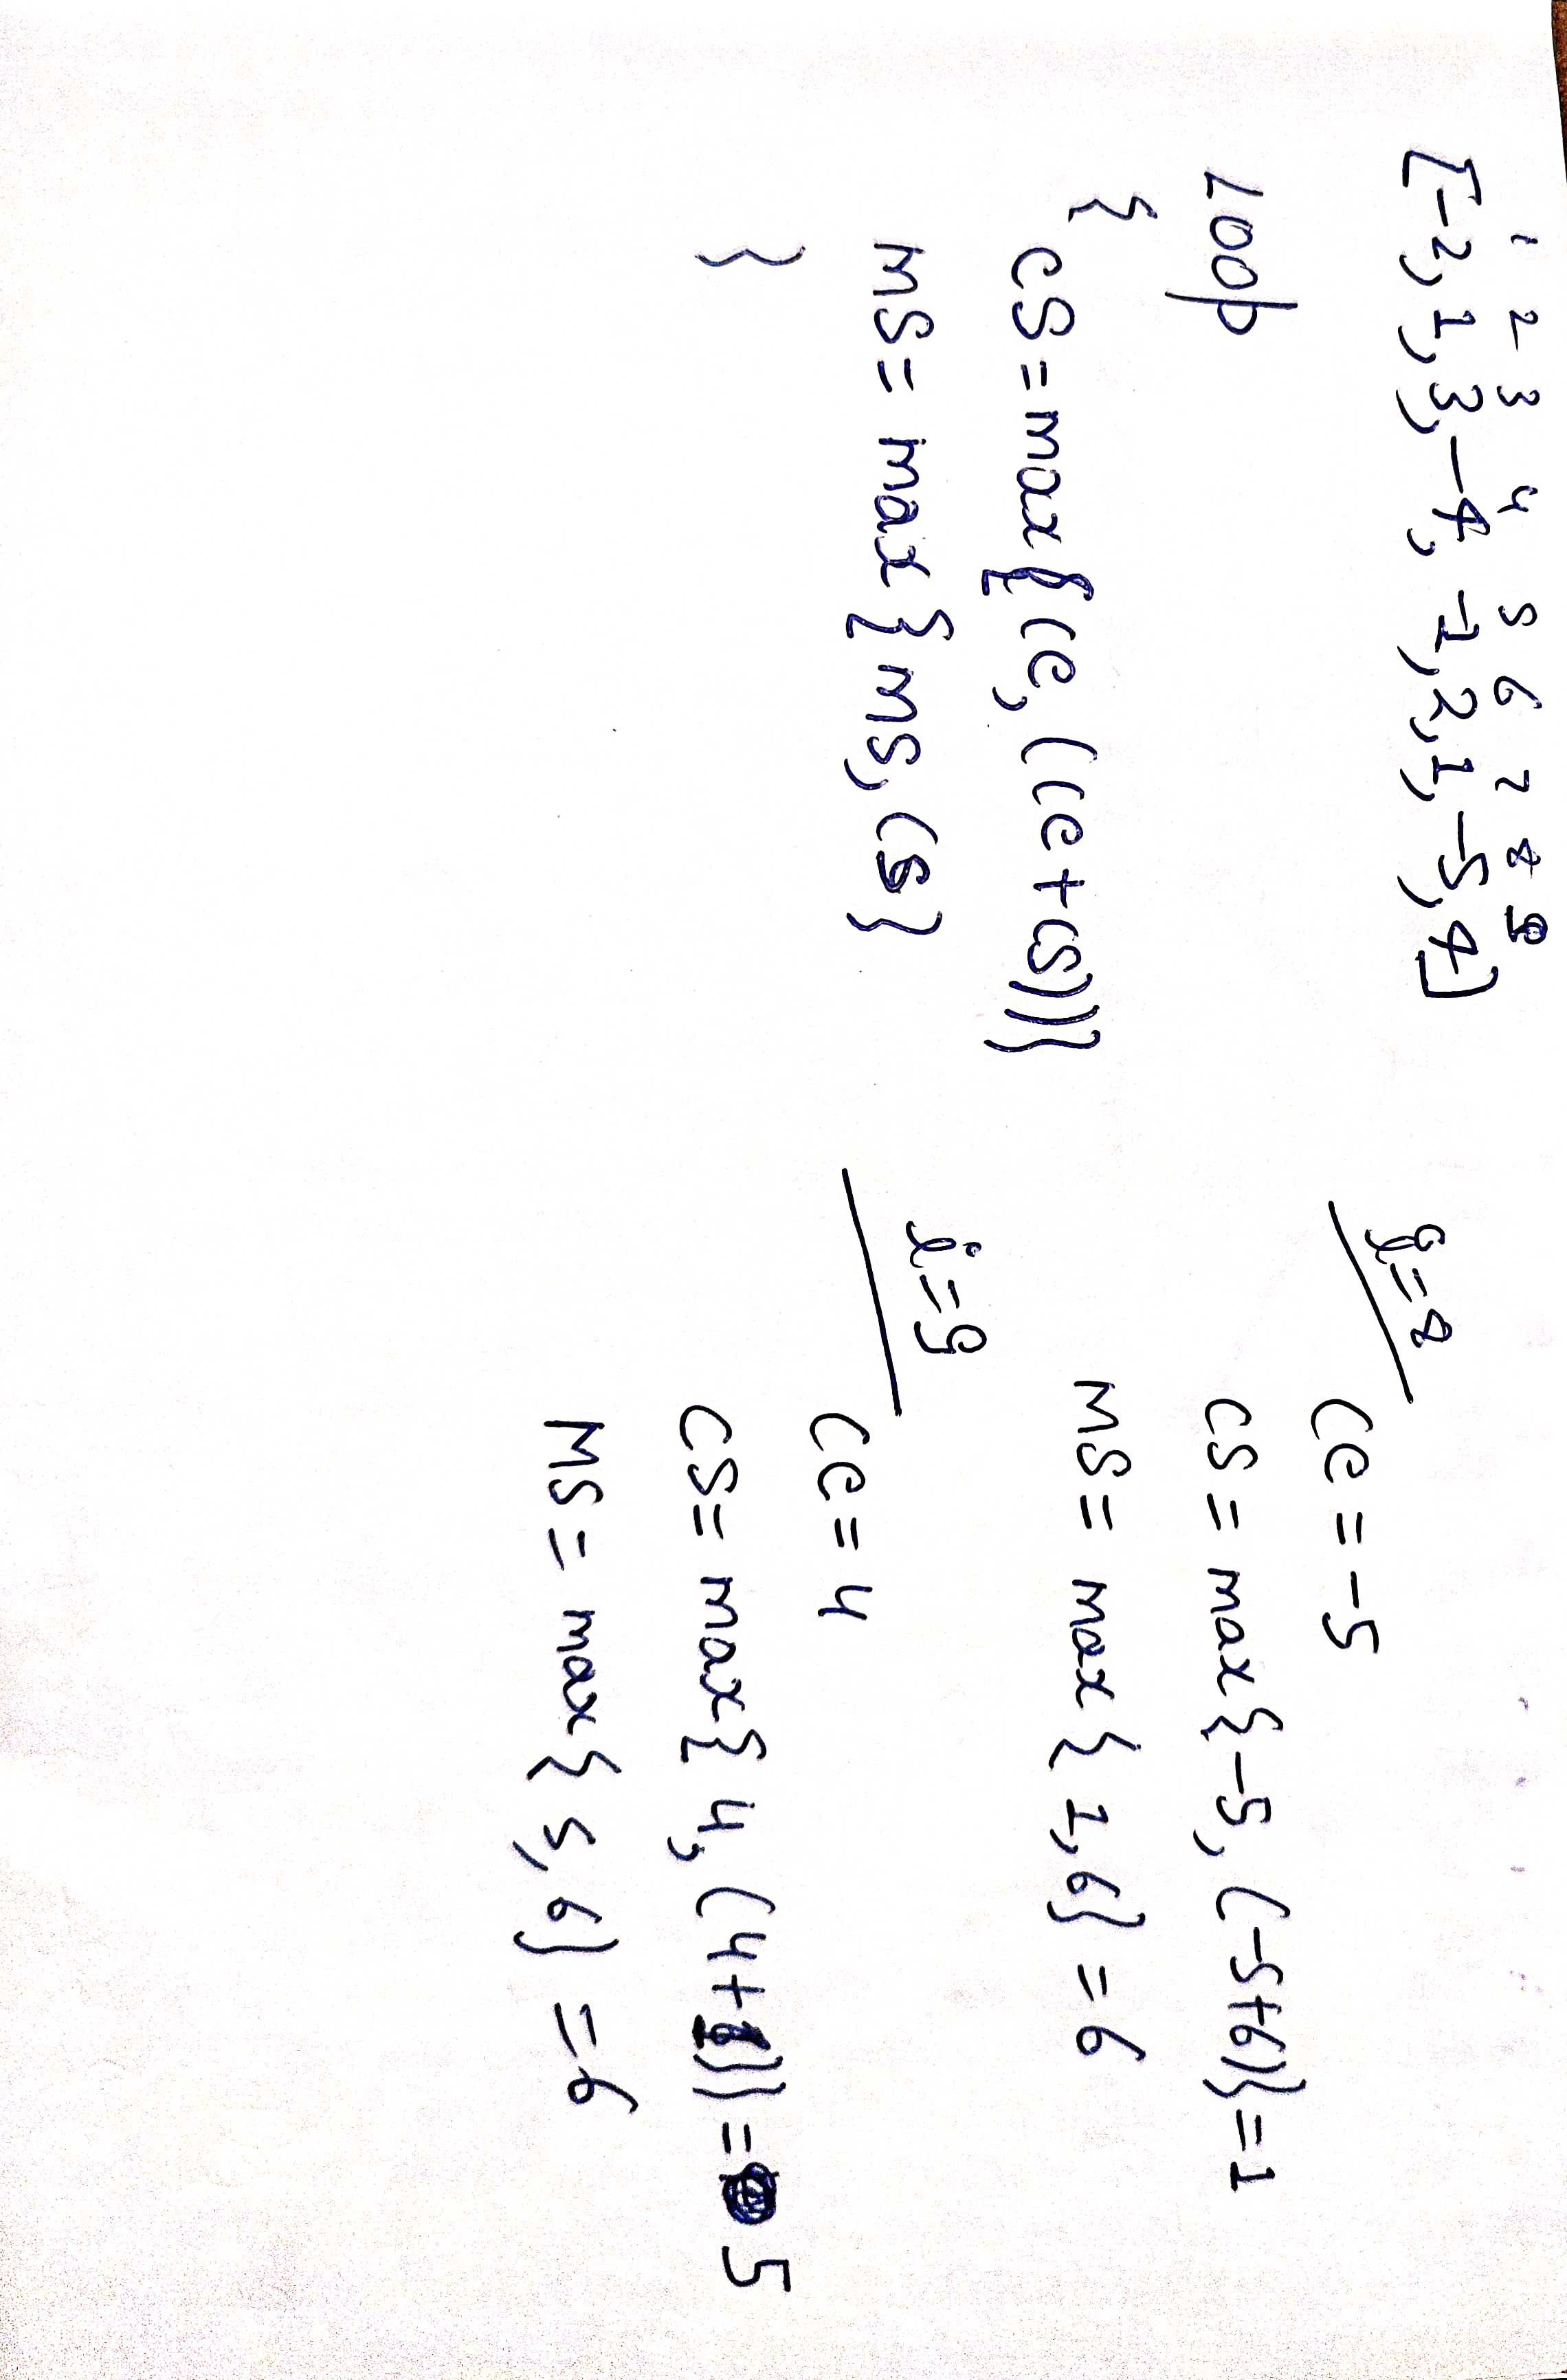 1 2 3 4 5 6 7 8 9
[-2, 1, 3, -4, -1, 2, 1, -5, 4]
Loop
{
CS = max{ce, (ce+cs)}
MS = max{MS, CS}
}
i=8
Ce = -5
CS = max{-5, (-5+6)} = 1
MS = max{1, 6} = 6
i=9
Ce = 4
CS = max{4, (4+1)} = 5
MS = max{5, 6} = 6